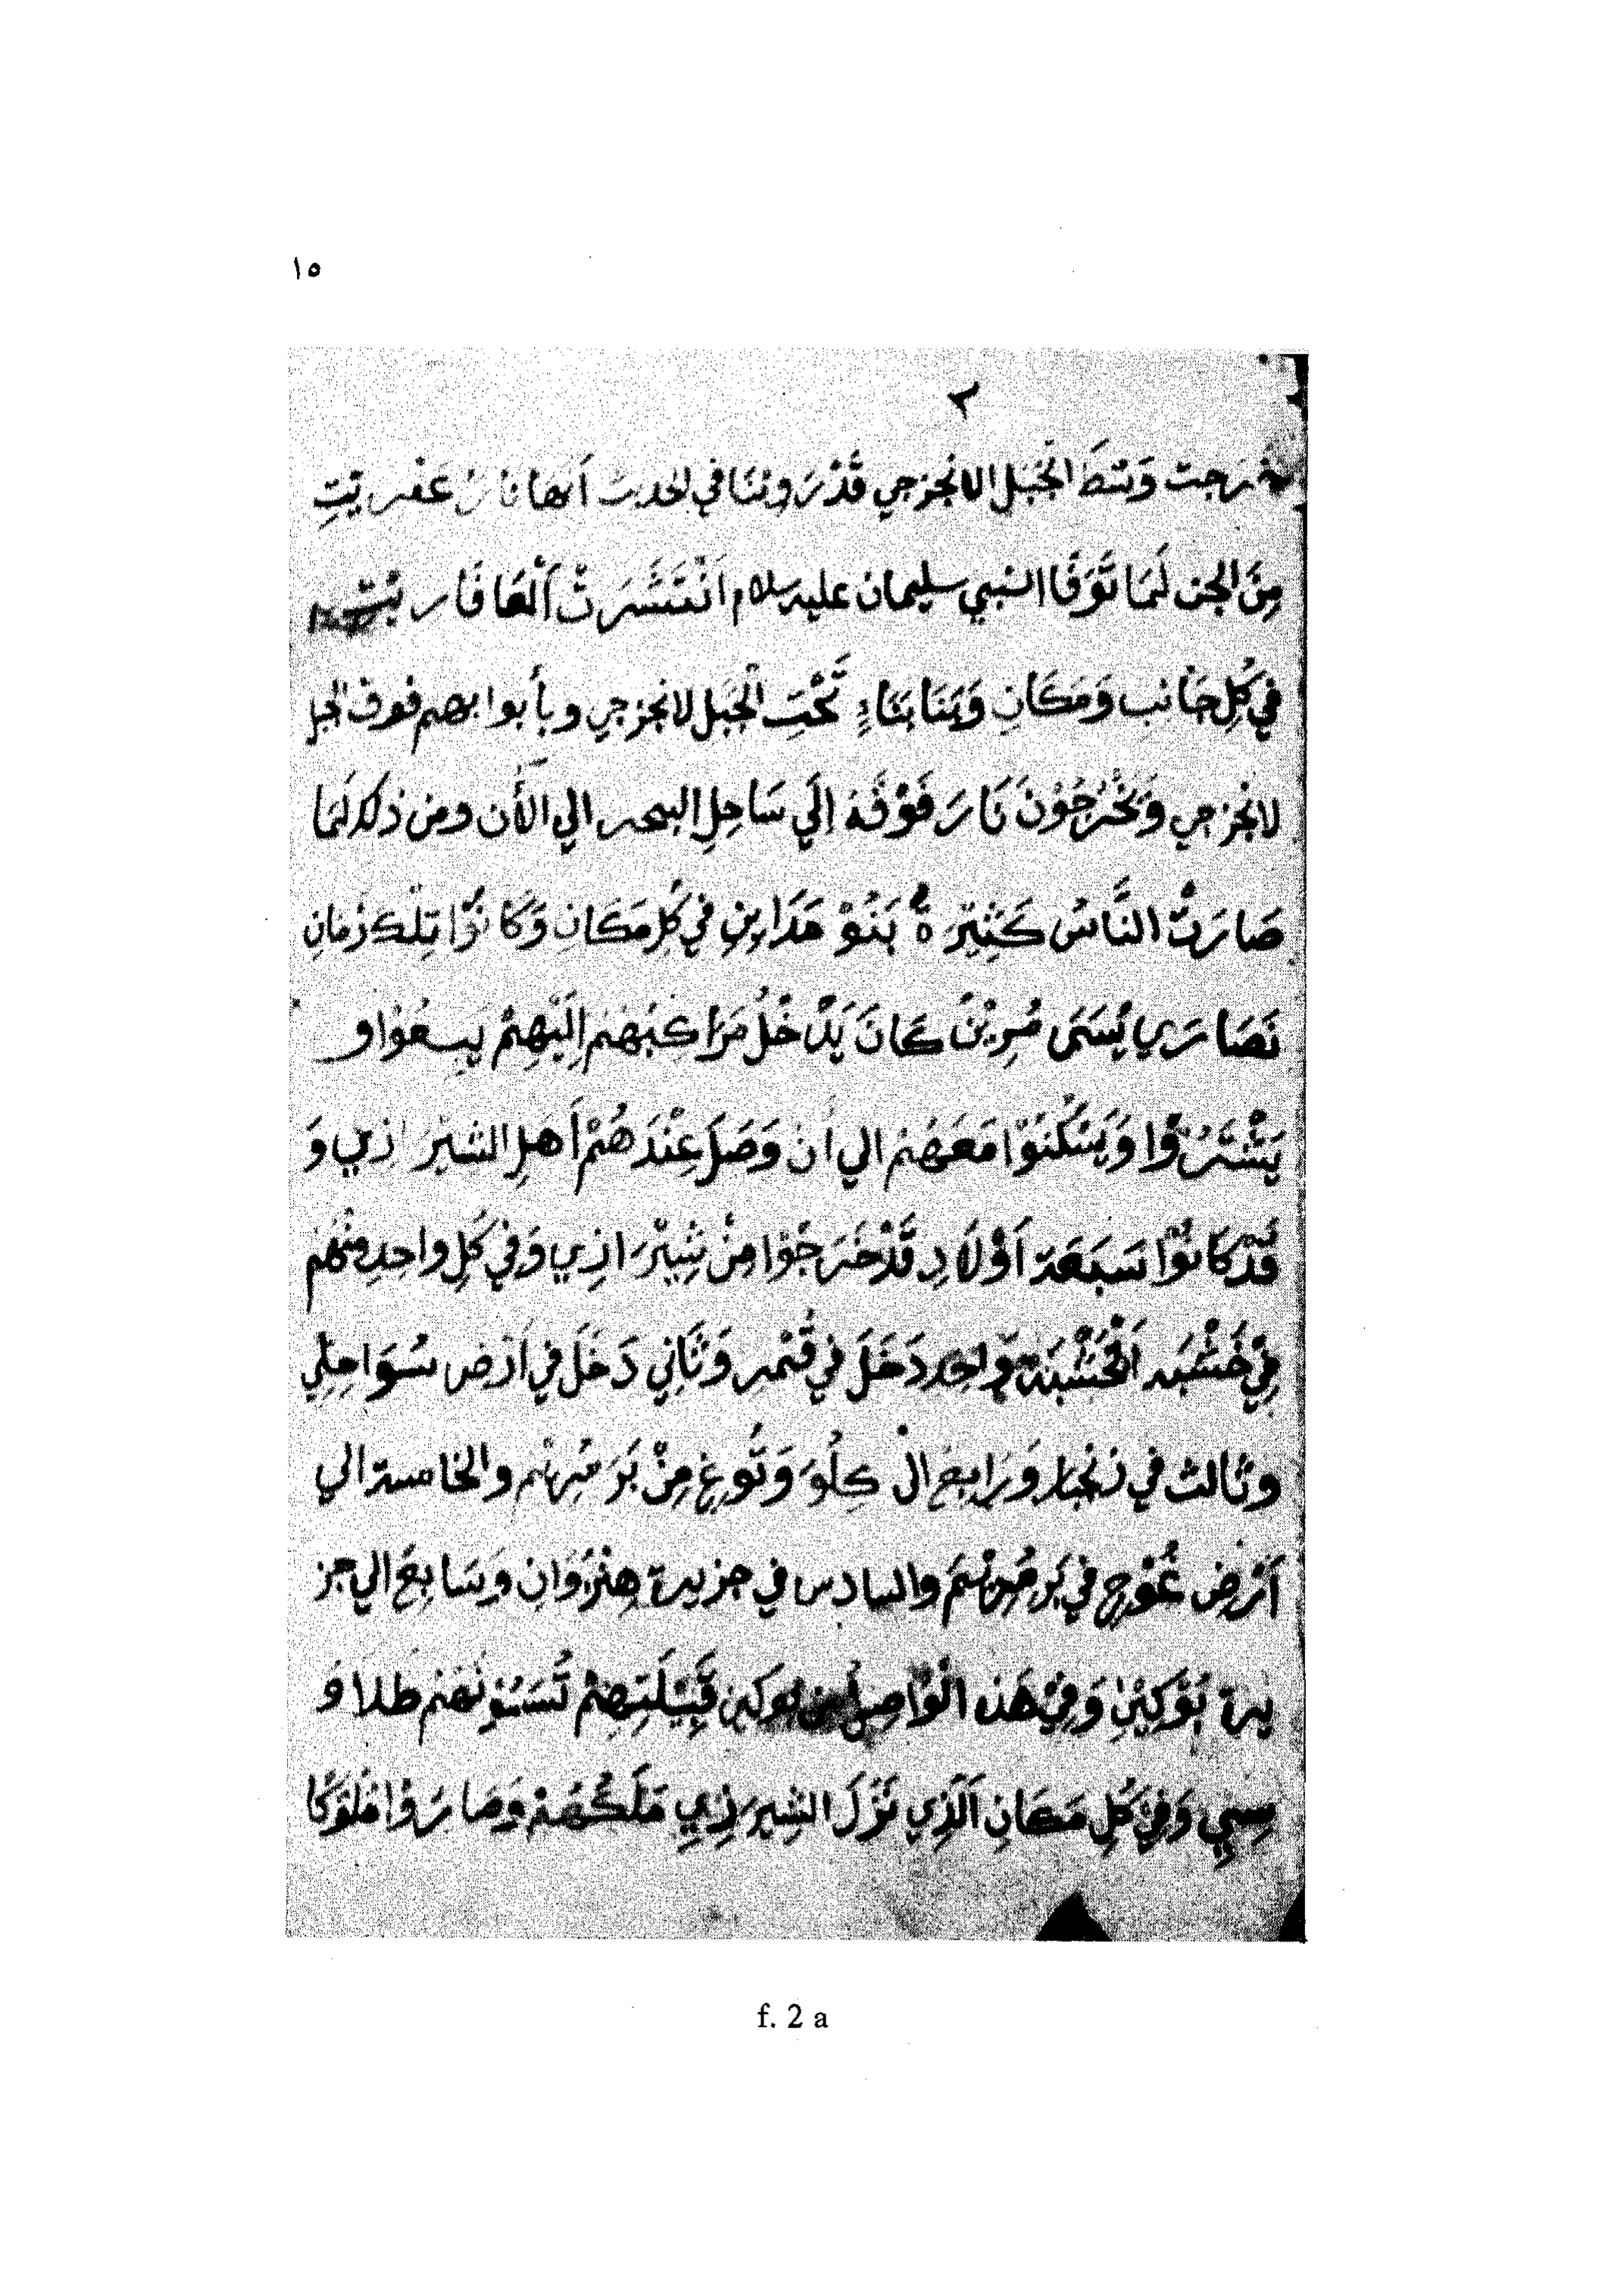 ١٥
٢
خرجت وَسَطَ الجَبَل الانجزجي قَدْ رَوِيْنَا في الحديث أنها نار عفريتِ
مِنَ الجن لَمَا تَوَفَّا النبي سليمان عليه سلام اَنْتَشَرَتْ اَلْعَافَاريتْ
في كُلِ جَانب وَمَكَانِ وَبَنَا بَنَاءٍ تَحْتِ الْجَبَل لانجزجي وبأبوابهم فوق الجبل
لانجزجي وَيَخْرُجُوْنَ نَارَ فَوْقَهُ اِلَي سَاحِلِ البحر الي الأن ومن ذلك لَمَا
صَارَتْ النَّاسُ كَثِيْرَةٌ بَنَوْ مَدَايِنِ في كُلِ مَكَانِ وَكَانُوْا تِلْكَ زْمَانِ
نَصَارَي يُسَمَى مُرِيْنُ كَانَ يَدْخُلُ مَرَاكِبُهُم اِلَيْهِمْ يبيعُوْا و
يَشْتَرُوْا وَيَسْكُنُوْا مَعَهُم الي ان وَصَلَ عِنْدَهُمْ اَهلِ الشيْرَازي وَ
قَدْ كَانُوْا سَبعَة اَوْلَادِ قَدْ خَرَجَوْا مِنْ شِيْرَازِي وَفي كُلِ واحِدِ مِنْهُم
فِيْ خَشَبه اَلْخَشَبَة وَاحِد دَخَلَ في قُمْرِ وَثَانِي دَخَلَ في اَرْضِ سُوَاحِلِي
وثالث في زنجبار وَرَابِع الى كِلْوَ وَتُوغِ مِنْ بَرَ مْرِيْم والخامسة الي
اَرْضِ غُوْجِ في بَرِ مْرِيْم والسادس في جزيرة هِنْزُوَانِ وَسَابِعُ الي جز
يرة بُوْكِيْنِ وَفِيْ هَذه الْوَاصِلِ من بوكين قَبِيْلَتِهِمْ تُسَمُوْنَهُم طلا و
سبي وَفي كُلِ مَكَانِ اَلَذِي نَزَلَ الشِيرَزِي مَلَكُهُمْ وَصَارَوْا مُلُوْكًا
f. 2 a